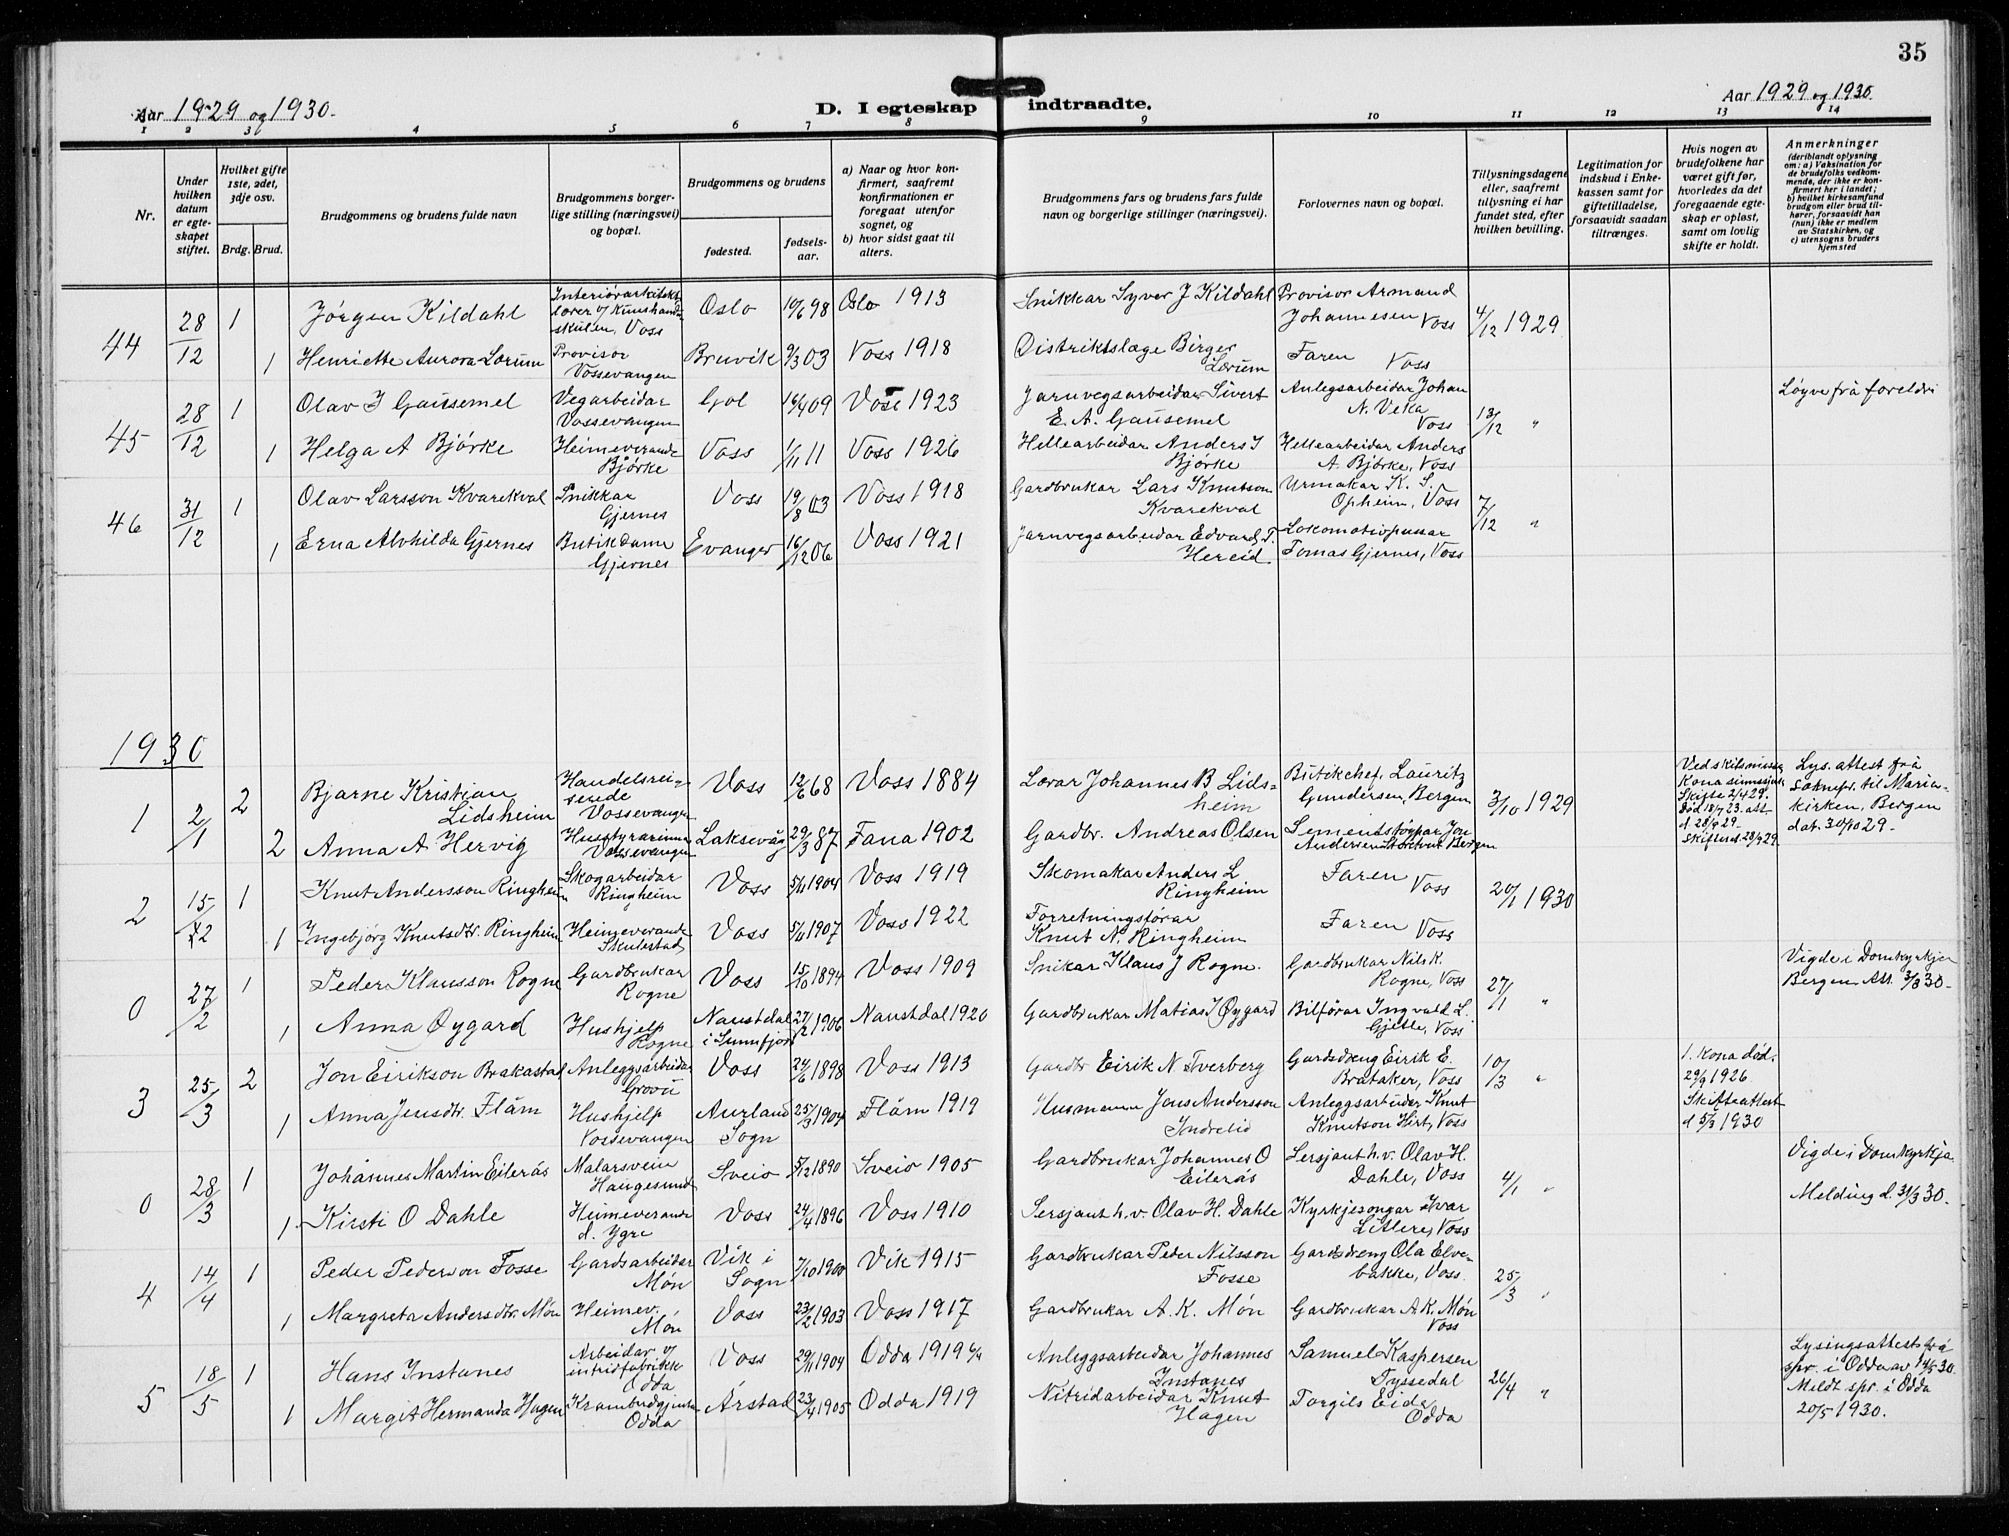 35
Aar 1929 og 1930.
D. I egteskap indtraadte.
Aar 1929 og 1930.
1 2 3 4 5 6 7 8 9 10 11 12 13 14
Nr.
Under hvilken datum er egteskapet stiftet.
Hvilket gifte 1ste, 2det, 3dje osv.
Brdg. Brud.
Brudgommens og brudens fulde navn
Brudgommens borgerlige stilling (næringsvei) og bopæl.
Brudgommens og brudens
fødested.
fødselsaar.
a) Naar og hvor konfirmert, saafremt konfirmationen er foregaat utenfor sognet, og
b) hvor sidst gaat til alters.
Brudgommens fars og brudens fars fulde navn og borgerlige stillinger (næringsvei).
Forlovernes navn og bopæl.
Tillysningsdagene eller, saafremt tillysning ei har fundet sted, efter hvilken bevilling.
Legitimation for indskud i Enkekassen samt for giftetilladelse, forsaavidt saadan tiltrænges.
Hvis nogen av brudefolkene har været gift før, hvorledes da det foregaaende egteskap er opløst, samt om lovlig skifte er holdt.
Anmerkninger
(deriblandt oplysning om: a) Vaksination for de brudefolks vedkommende, der ikke er konfirmert her i landet; b) hvilket kirkesamfund brudgom eller brud tilhører, forsaavidt han (hun) ikke er medlem av Statskirken, og c) utensogns bruders hjemsted
44 28/12 1 Jørgen Kildahl Interiørarkitekt lærer skulen, Voss Oslo 98 Oslo 1913 Snikkar Syver J Kildahl Provisor Armand Johannesen Voss 4/12 1929
1 Henriette Aurora Lorum Provisor Vossevangen Bruvik 9/3 03 Voss 1918 Distriktslæge Birger Lorum Faren Voss
45 28/12 1 Olav I Gausemel Vegarbeidar Vossevangen Gol 09 Voss 1923 Jarnvegsarbeidar Sivert E. A. Gausemel Anlegsarbeidar Johan N. Veka Voss 13/12 " Løyve frå foreldri
1 Helga A Bjørke Heimeverande Bjørke Voss 1/11 11 Voss 1926 Hellearbeidar Anders I Bjørke Hellearbeidar Anders A. Bjørke, Voss
46 31/12 1 Olav Larsson Kvarekval Snikkar Gjernes Voss 19/8 03 Voss 1918 Gardbrukar Lars Knutson Kvarekval Urmakar K. S. Opheim, Voss 7/12 "
1 Erna Alvhilda Gjernes Butikdame Gjernes Evanger 16/12 06 Voss 1921 Jarnvegsarbeidar Edvard T. Hereid. Lokomotivpussar Tomas Gjernes, Voss
1930
1 2/1 2 Bjarne Kristian Lidsheim Handelsreisende Vossevangen Voss 12/6 68 Voss 1884 Lærar Johannes B. Lidsheim Butikchef. Lauritz Gundersen, Bergen 3/10 1929 Ved skilsmisse Kona Skifte 2/4 29. Død 18/7 23. att. d 28/9 29. Skifteatt. 28/9 29. Lys. attest frå Soknepr. til Mariekirken, Bergen dat. 30/10 29.
2 Anna A. Hervig Husstyrarinne Vossevangen Laksevåg 29/3 87 Fana 1902 Gardbr. Andreas Olsen Sementstøypar Jon Andersen Bergen
2 15/2 1 Knut Andersson Ringheim Skogarbeidar Ringheim Voss 1904 Voss 1919 Skomakar Anders L Ringheim Faren Voss 20/1 1930
1 Ingebjørg Knutsdtr. Ringheim Heimeverande Skulestad Voss 1907 Voss 1922 Forretningsførar Knut N. Ringheim Faren Voss
0 27/2 1 Peder Klausson Rogne Gardbrukar Rogne Voss 15/10 1894 Voss 1909 Snikar Klaus J Rogne. Gardbrukar Nils K. Rogne, Voss 27/1 " Vigde i Domkyrkja Bergen Att. 3/3 30.
1 Anna Øygard Hushjelp Rogne Naustdal i Sunnfjord 1906 Naustdal 1920 Gardbrukar Matias I Øygard Bilførar Ingvald L. Gjelle, Voss
3 25/3 2 Jon Eirikson Brakastad Anleggsarbeidar Grovu Voss 24/6 1898 Voss 1913 Gardbr Eirik N. Tverberg Gardsdreng Eirik E. Brataker, Voss 10/3 " 1. Kona død. 29/9 1926. Skifteattest d 5/3 1930
1 Anna Jensdtr. Flåm Hushjelp Vossevangen Aurland Sogn 25/3 1904 Flåm 1919 Husmann Jens Andersson Indrelid Anleggsarbeidar Knut Knutson Hirt, Voss
0 28/3 1 Johannes Martin Eilerås Malarsvein Haugesund Sveio 5/12 1890 Sveio 1905 Gardbrukar Johannes O Eilerås Sersjant h.v. Olav H. Dahle, Voss 4/1 " Vigde i Domkyrkja. Melding d. 31/3 30.
1 Kirsti O Dahle Heimeverande d. Ygre Voss 24/4 1896 Voss 1910 Sersjant h.v. Olav H. Dahle Kyrkjesongar Ivar Litlere, Voss
4 14/4 1 Peder Pederson Fosse Gardsarbeidar Møn Vik i Sogn 7/10 1900 Vik 1915 Gardbrukar Peder Nilsson Fosse Gardsdreng Ola Elvebakke, Voss. 25/3 "
1 Margreta Andersdtr. Møn Heimev. Møn Voss 23/2 1903 Voss 1917 Gardbrukar A. K. Møn Gardbrukar A. K. Møn Voss
5 18/5 1 Hans Instanes Arbeidar Odda Voss 29/11 1904 Odda 1919 Anleggsarbeidar Johannes Instanes Samuel Kaspersen Tyssedal 26/4 " Lysingsattest frå spr. i Odda av 14/5 30. Meldt spr. i Odda 20/5 1930.
1 Margit Hermanda Hagen Krambudgjenta Odda Årstad 23/4 1905 Odda 1919 Nitridarbeidar Knut Hagen Torgils Eide Odda